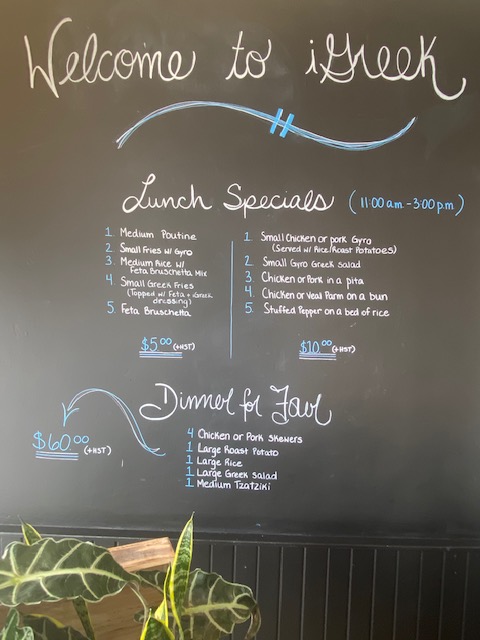 Welcome to iGreek
Lunch Specials (11:00 a.m. - 3:00 p.m.)
1. Medium Poutine
2. Small Fries w/ Gyro
3. Medium Rice w/
Feta Bruschetta Mix
4. Small Greek Fries
(Topped w/ Feta + iGreek
dressing)
5. Feta Bruschetta
$5.00 (+HST)
1. Small Chicken or pork Gyro
(Served w/ Rice/Roast Potatoes)
2. Small Gyro Greek Salad
3. Chicken or Pork in a pita
4. Chicken or Veal Parm on a bun
5. Stuffed Pepper on a bed of rice
$10.00 (+HST)
Dinner for Four
$60.00 (+HST)
4 Chicken or Pork Skewers
1 Large Roast Potato
1 Large Rice
1 Large Greek Salad
1 Medium Tzatziki